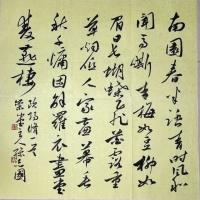 南園春半踏青時風和
聞馬嘶青梅如豆柳如
眉日長蝴蝶飛花露重
草烟低人家簾幕垂
秋千慵困解羅衣畫堂
雙燕棲
歐陽修